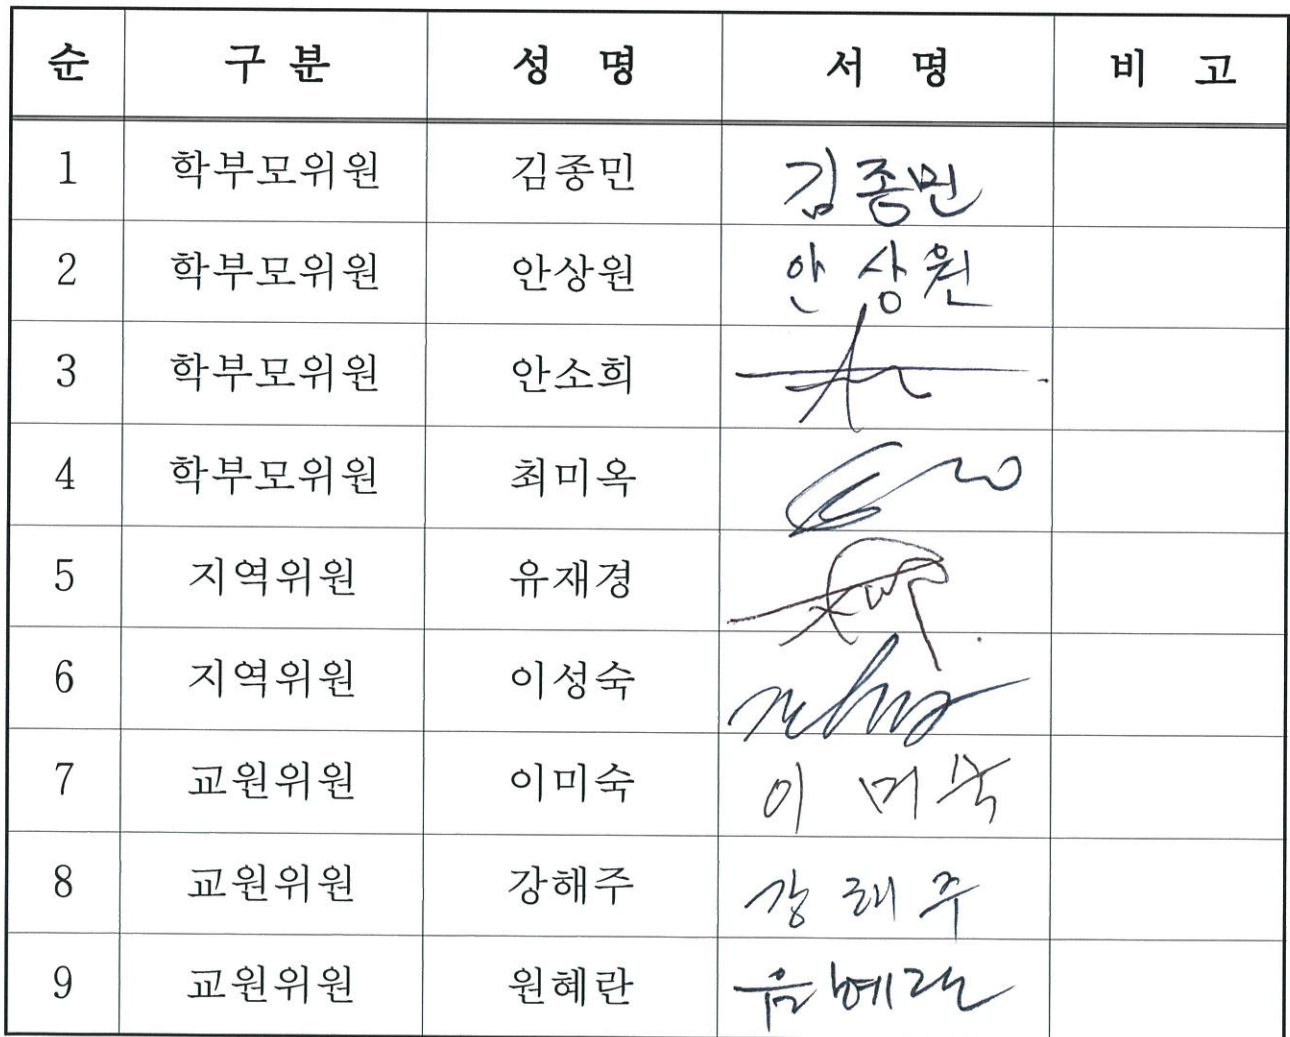 순 구 분 성 명 서 명 비 고
1 학부모위원 김종민 김종민
2 학부모위원 안상원 안상원
3 학부모위원 안소희
4 학부모위원 최미옥
5 지역위원 유재경
6 지역위원 이성숙
7 교원위원 이미숙 이미숙
8 교원위원 강해주 강해주
9 교원위원 원혜란 원혜란